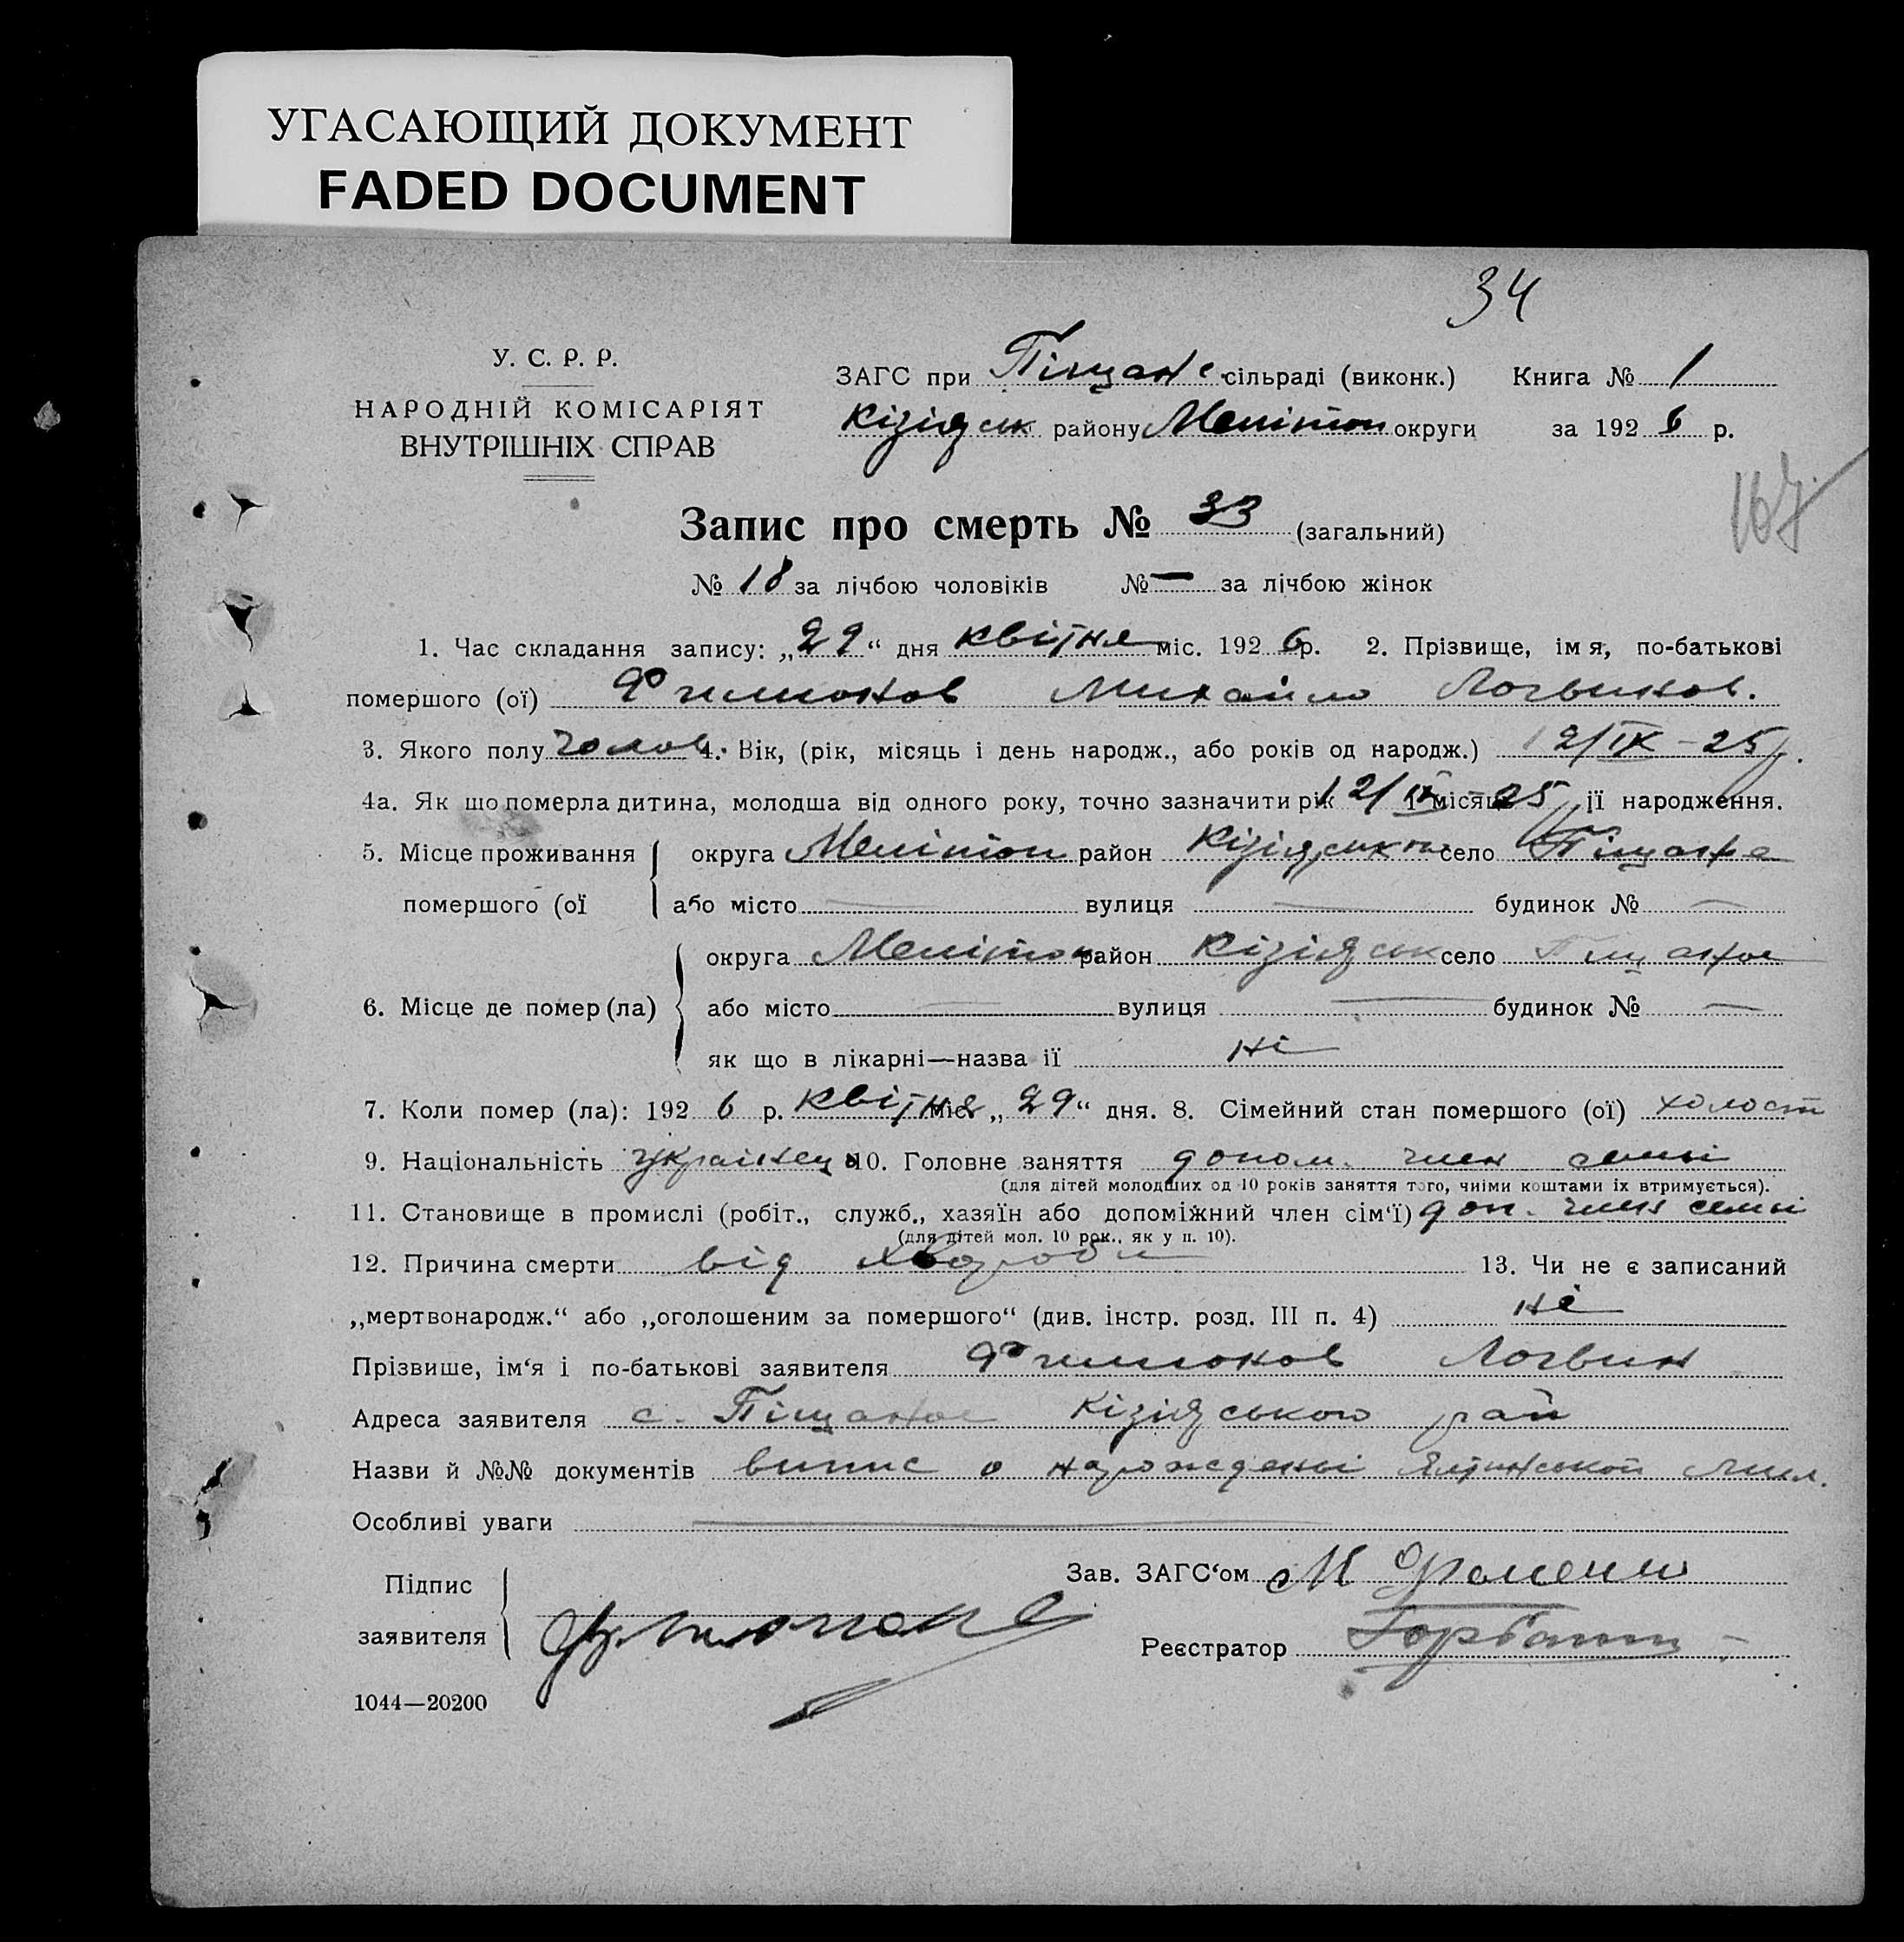 УГАСАЮЩИЙ ДОКУМЕНТ
FADED DOCUMENT
34
У. С. Р. Р.
НАРОДНІЙ КОМІСАРІЯТ
ВНУТРІШНІХ СПРАВ
ЗАГС при Піщане сільраді (виконк.) Книга № 1
Кізіяськ району Меліпоп округи за 1926 р.
167
Запис про смерть № 33 (загальний)
№ 18 за лічбою чоловіків № — за лічбою жінок
1. Час складання запису: „29“ дня квітня міс. 1926 р. 2. Прізвище, імя, по-батькові
помершого (ої) Михайло Логвинов.
3. Якого полу чолов. 4. Вік, (рік, місяць і день народж., або років од народж.) 12/IX-25р.
4а. Як що померла дитина, молодша від одного року, точно зазначити рік 12/IX місяць 25 її народження.
5. Місце проживання помершого (ої округа Меліпоп район село Піщане
або місто — вулиця — будинок № —
6. Місце де помер (ла) округа Меліпоп район Кізіяськ село Піщаное
або місто — вулиця — будинок № —
як що в лікарні—назва ії ні
7. Коли помер (ла): 1926 р. квітня міс. „29“ дня. 8. Сімейний стан помершого (ої) холост
9. Національність українец 10. Головне заняття допом. член семьі
(для дітей молодших од 10 років заняття того, чиїми коштами їх втримується).
11. Становище в промислі (робіт., служб., хазяїн або допоміжний член сім‘ї) доп. член семьі
(для дітей мол. 10 рок., як у п. 10).
12. Причина смерти від хвороби 13. Чи не є записаний
„мертвонародж.“ або „оголошеним за помершого“ (див. інстр. розд. III п. 4) ні
Прізвише, ім‘я і по-батькові заявителя Логвин
Адреса заявителя с. Піщаное Кізіяського рай
Назви й №№ документів випис о нарожденьі
Особливі уваги —
Підпис
заявителя
Зав. ЗАГС‘ом
Реєстратор
1044—20200